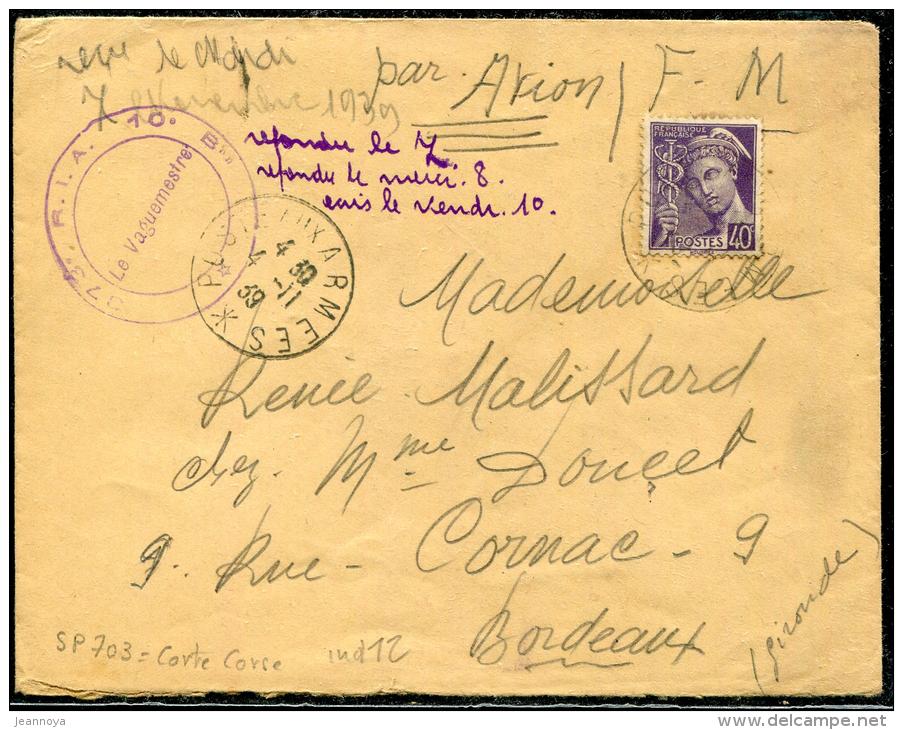 reçu le Mardi
7 Novembre 1939
par Avion / F - M
repondu le 7
repondu le mercr. 8.
puis le Vendr. 10.
373e R.I.A. 10. Bie
Le Vaguemestre
POSTE AUX ARMEES
4 30
4 -11
39
RÉPUBLIQUE
FRANÇAISE
POSTES 40c
Mademoiselle
Renée Malissard
chez Mme Doucet
9. Rue - Cornac - 9
Bordeaux
(Gironde)
SP 703 = Corte Corse ind 12
jeannoya
www.delcampe.net